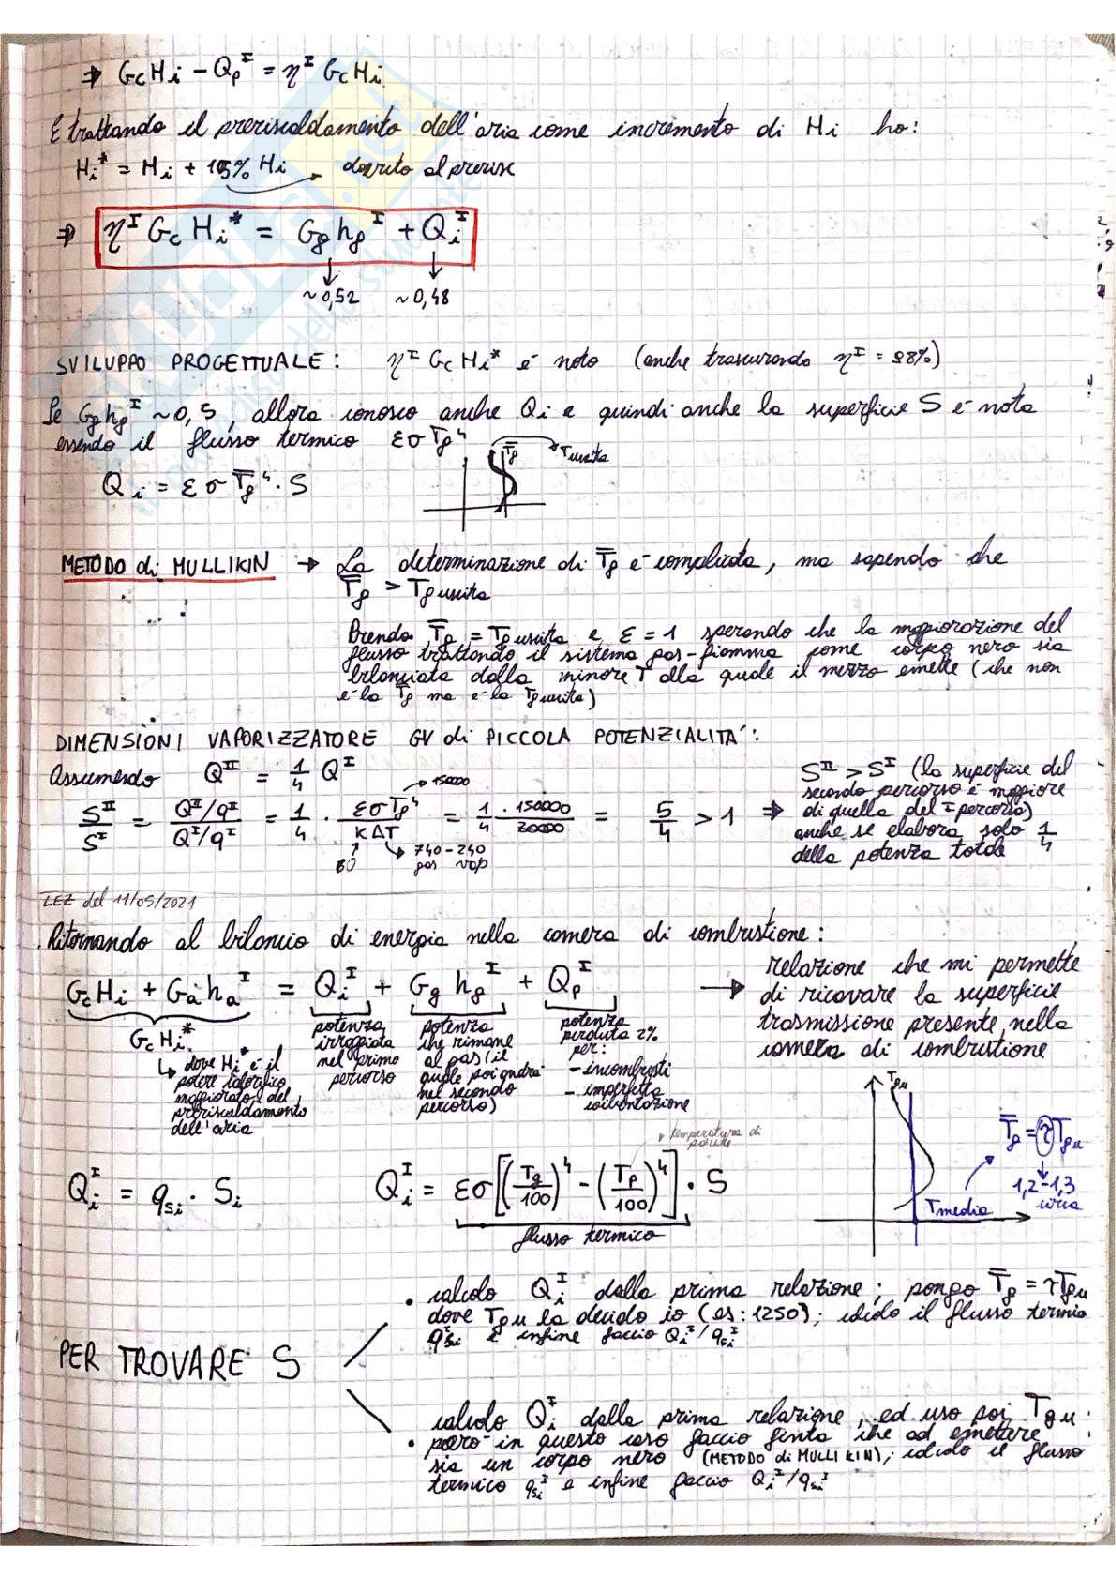 ⇒ GcHi − Qp^I = η^I GcHi
E trattando il preriscaldamento dell'aria come incremento di Hi ho:
Hi* = Hi + 15% Hi → dovuto al prerisc
⇒ η^I Gc Hi* = Gg hg^I + Qi^I
~0,52 ~0,48
SVILUPPO PROGETTUALE: η^I Gc Hi* è noto (anche trascurando η^I = 98%)
Se Gg hg^I ~0,5, allora conosco anche Qi e quindi anche la superficie S è nota
essendo il flusso termico εσT̄g⁴
T̄g Tuscita
Qi = εσT̄g⁴·S
METODO di MULLIKIN → La determinazione di T̄g è complicata, ma sapendo che
T̄g > Tg uscita
Prendo T̄g = Tg uscita e ε = 1 sperando che la maggiorazione del
flusso trattando il sistema gas-fiamma come corpo nero sia
bilanciata dalla minore T alla quale il mezzo emette (che non
è la T̄g ma è la Tg uscita)
DIMENSIONI VAPORIZZATORE GV di PICCOLA POTENZIALITA':
Assumendo Q^II = 1/4 Q^I
S^II/S^I = (Q^II/q^II)/(Q^I/q^I) = 1/4 · εσTg⁴/(KΔT) = 1/4 · 150000/20000 = 5/4 > 1 ⇒
→ 15000
80 740-240
gas vap
S^II > S^I (la superficie del
secondo percorso è maggiore
di quella del I percorso)
anche se elabora solo 1/4
della potenza totale
LEZ del 11/05/2021
Ritornando al bilancio di energia nella camera di combustione:
GcHi + Ga ha^I = Qi^I + Gg hg^I + Qp^I →
relazione che mi permette
di ricavare la superficie
trasmissione presente nella
camera di combustione
Gc Hi*
↳ dove Hi* è il
potere calorifico
maggiorato del
preriscaldamento
dell'aria
potenza
irraggiata
nel primo
percorso
potenza
che rimane
al gas (il
quale poi andrà
nel secondo
percorso)
potenza
perduta 2%
per:
- incombusti
- imperfetta
coibentazione
Tgu
T̄g = τTgu
1,2-1,3
circa
Tmedia
temperatura di
parete
Qi^I = qsi · Si
Qi^I = εσ[(Tg/100)⁴ − (Tp/100)⁴] · S
flusso termico
PER TROVARE S
• calcolo Qi^I dalla prima relazione; pongo T̄g = τTgu
dove Tgu la decido io (es: 1250); calcolo il flusso termico
qsi^I e infine faccio Qi^I/qsi^I
calcolo Qi^I dalla prima relazione, ed uso poi Tgu
• però in questo caso faccio finta che ad emettere
sia un corpo nero (METODO di MULLIKIN); calcolo il flusso
termico qsi^I e infine faccio Qi^I/qsi^I